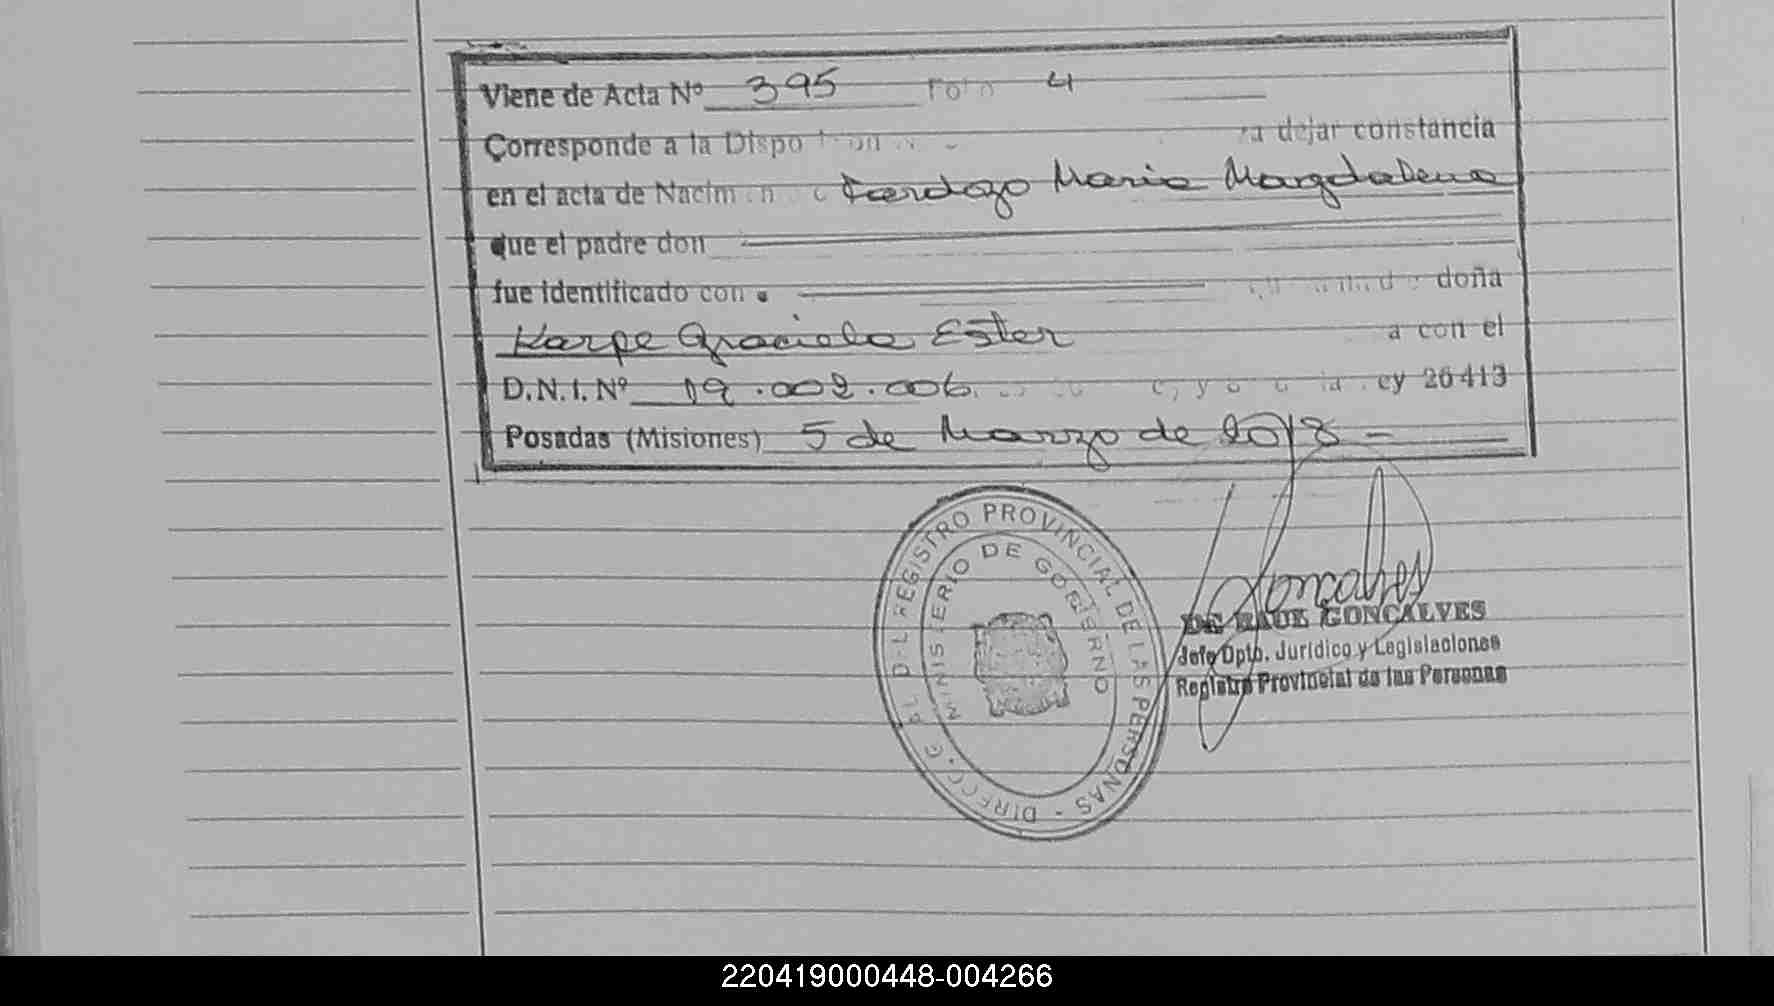 Viene de Acta Nº 395 Folio 4
Corresponde a la Dispo dejar constancia
en el acta de Nacim Cardozo Maria Magdalena
que el padre don
fue identificado con doña
Karpe Graciela Ester a con el
D.N.I. Nº 19.002.006. ey 26413
Posadas (Misiones) 5 de Marzo de 2018 -
REGISTRO PROVINCIAL DE LAS PERSONAS -
MINISTERIO DE GOBIERNO
RAUL GONCALVES
Jefe Dpto. Jurídico y Legislaciones
Registro Provincial de las Personas
220419000448-004266